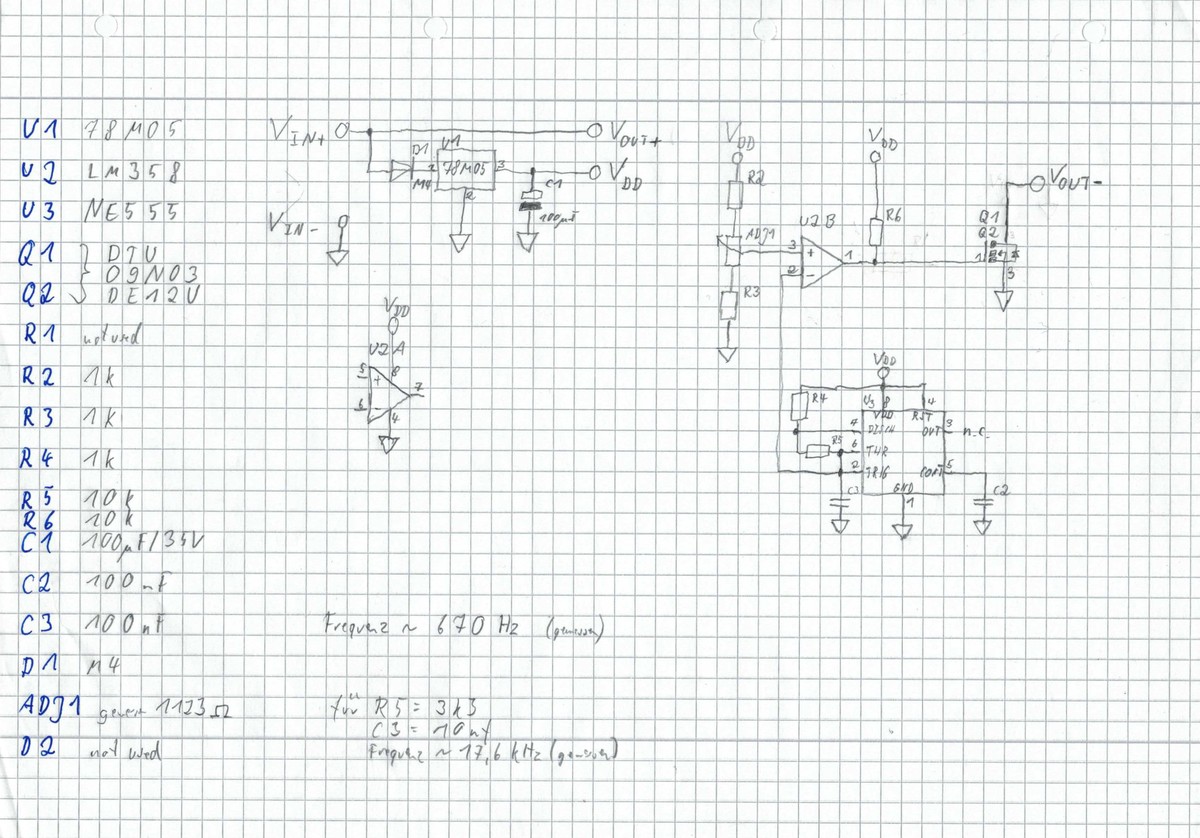 U1 78M05
U2 LM358
U3 NE555
Q1 DTU
09N03
Q2 DE12U
R1 not used
R2 1k
R3 1k
R4 1k
R5 10k
R6 10k
C1 100µF/35V
C2 100nF
C3 100nF
D1 M4
ADJ1 1123Ω
D2 not used
VIN+
VOUT+
D1
U1
M4
2
78M05
3
2
VDD
C1
100µF
VIN-
VDD
U2A
5
+
8
7
6
-
4
VDD
R2
ADJ1
R3
VDD
R6
U2B
3
+
1
2
-
VOUT-
Q1
Q2
1
3
VDD
R4
U3
8
4
VDD
RST
7
DISCH
OUT
3
n.c.
R5
6
THR
2
TRIG
CONT
5
GND
1
C3
C2
Frequenz ~ 670 Hz (gemessen)
für R5 = 3k3
C3 = 10nF
Frequenz ~ 17,6 kHz (gemessen)